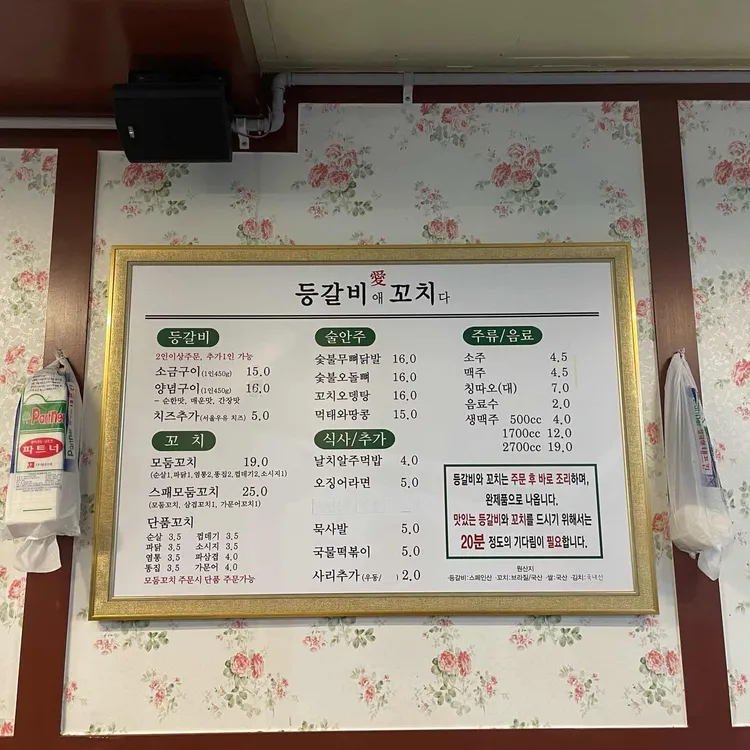 등갈비愛애 꼬치다
등갈비
2인이상주문, 추가1인 가능
소금구이(1인450g) 15.0
양념구이(1인450g) 16.0
- 순한맛, 매운맛, 간장맛
치즈추가(서울우유 치즈) 5.0
꼬 치
모둠꼬치 19.0
(순살1,파닭1,염통2,통집2,껍데기2,소시지1)
스패모둠꼬치 25.0
(모둠꼬치, 삼겹꼬치1, 가문어꼬치1)
단품꼬치
순살 3.5 껍데기 3.5
파닭 3.5 소시지 3.5
염통 3.5 파삼겹 4.0
통집 3.5 가문어 4.0
모둠꼬치 주문시 단품 주문가능
술안주
숯불무뼈닭발 16.0
숯불오돌뼈 16.0
꼬치오뎅탕 16.0
먹태와땅콩 15.0
식사/추가
날치알주먹밥 4.0
오징어라면 5.0
묵사발 5.0
국물떡볶이 5.0
사리추가(우동/ ) 2.0
주류/음료
소주 4.5
맥주 4.5
칭따오(대) 7.0
음료수 2.0
생맥주 500cc 4.0
1700cc 12.0
2700cc 19.0
등갈비와 꼬치는 주문 후 바로 조리하며,
완제품으로 나옵니다.
맛있는 등갈비와 꼬치를 드시기 위해서는
20분 정도의 기다림이 필요합니다.
원산지
·등갈비:스페인산 ·꼬치:브라질/국산 ·쌀:국산 ·김치:국내산
파트너